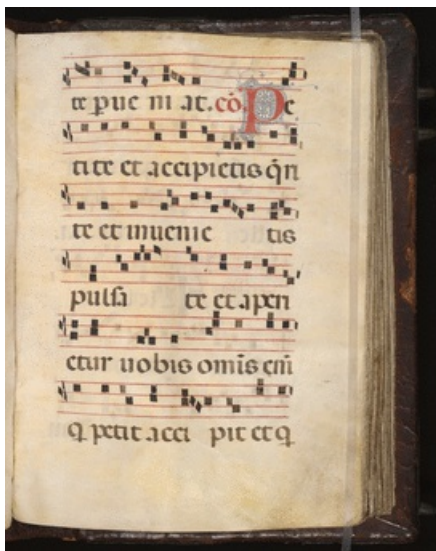 te pue ni at. cō. Pe
ti te et accipietis q̄ri
te et inuenie tis
pulsa te et aperi
etur uobis omīs eni᷒
q̄ petit acci pit et q̄